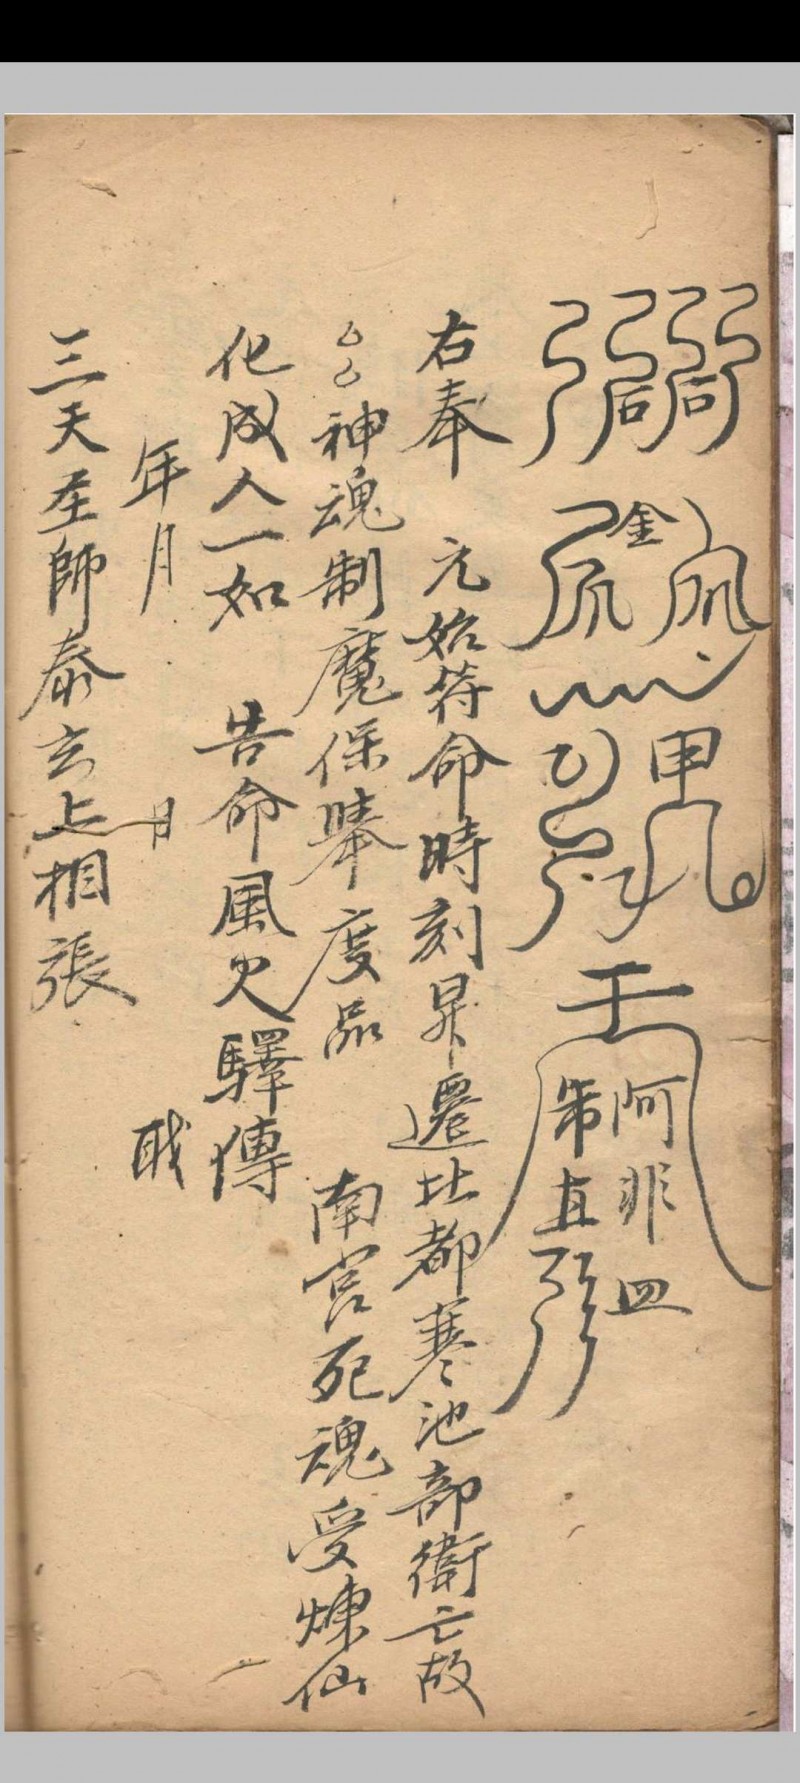 金
甲
阿非
直
四
右奉 元始符命時刻昇遷北都寒池部衛亡故
厶厶神魂制魔保舉度品 南宮死魂受煉仙
化成人一如 告命風火驛傳
年月 日 職
三天圣師泰玄上相張